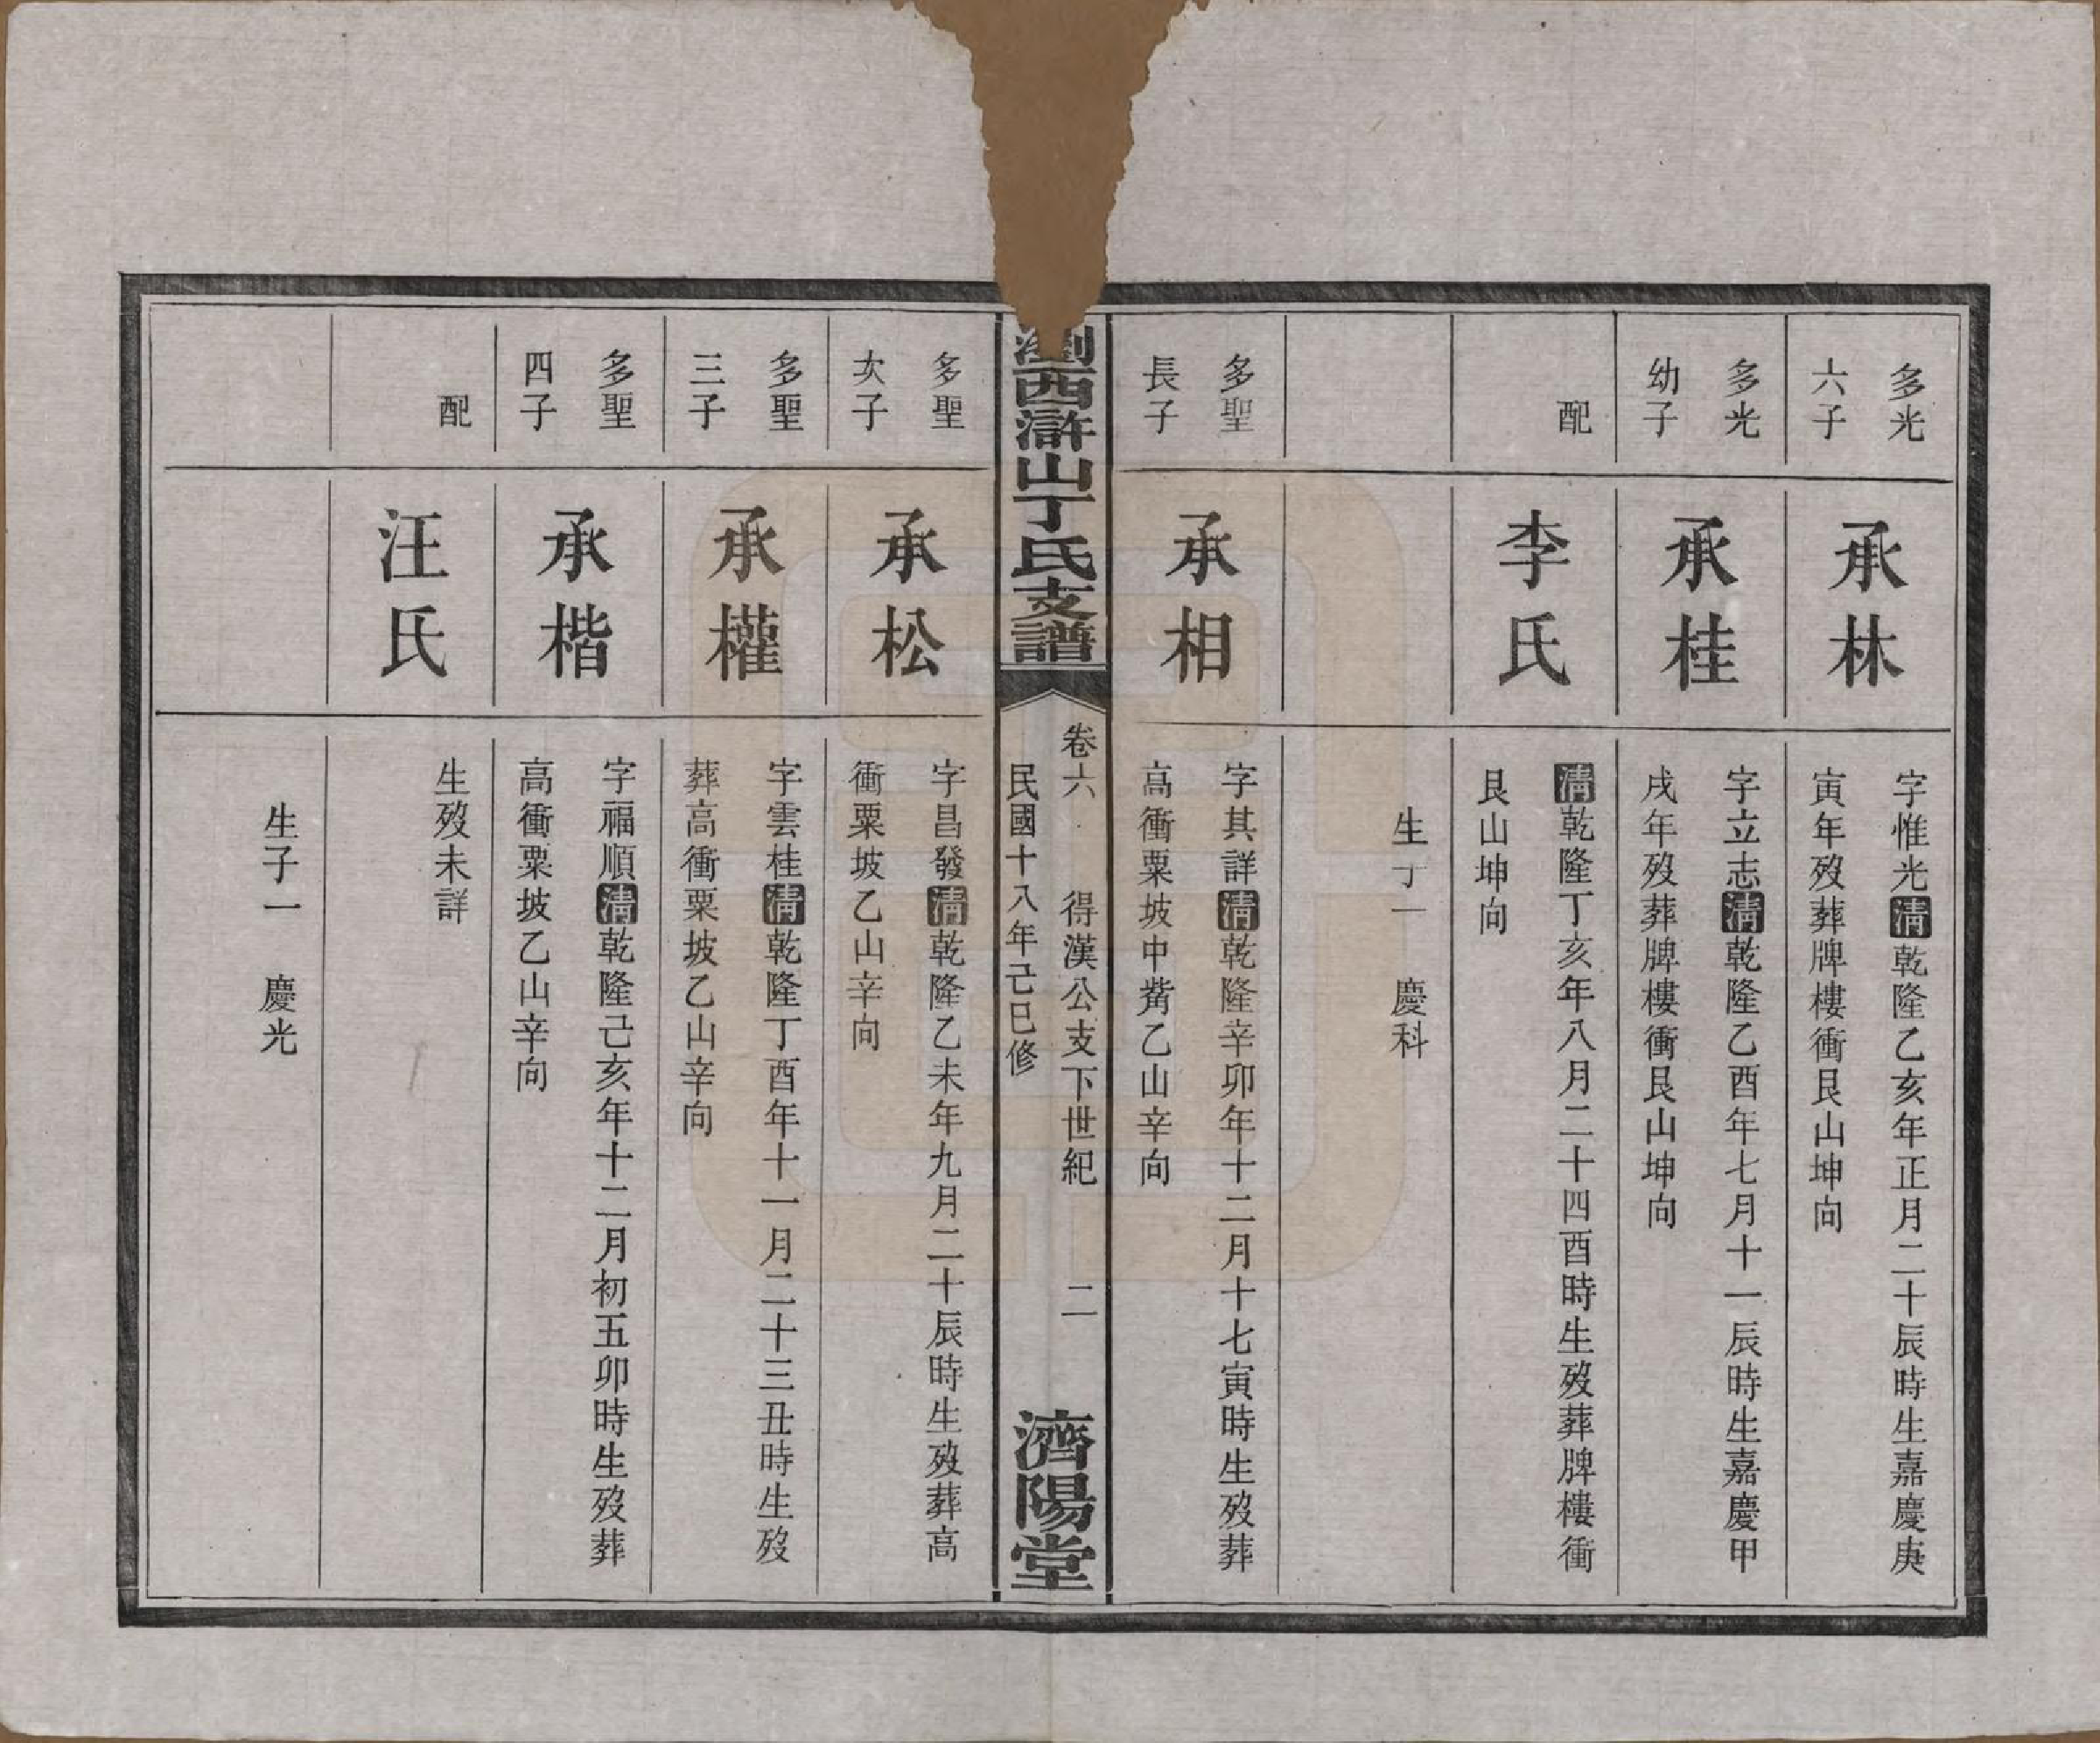 多光
六子
承林
字惟光清乾隆乙亥年正月二十辰時生嘉慶庚
寅年歿葬牌樓衝艮山坤向
多光
幼子
承桂
字立志清乾隆乙酉年七月十一辰時生嘉慶甲
戌年歿葬牌樓衝艮山坤向
配
李氏
清乾隆丁亥年八月二十四酉時生歿葬牌樓衝
艮山坤向
生子一　慶科
多聖
長子
承相
字其詳清乾隆辛卯年十二月十七寅時生歿葬
高衝粟坡中觜乙山辛向
瀏西滸山丁氏支譜
卷六　得漢公支下世紀　二
民國十八年己巳修
濟陽堂
多聖
次子
承松
字昌發清乾隆乙未年九月二十辰時生歿葬高
衝粟坡乙山辛向
多聖
三子
承權
字雲桂清乾隆丁酉年十一月二十三丑時生歿
葬高衝粟坡乙山辛向
多聖
四子
承楷
字福順清乾隆己亥年十二月初五卯時生歿葬
高衝粟坡乙山辛向
配
汪氏
生歿未詳
生子一　慶光